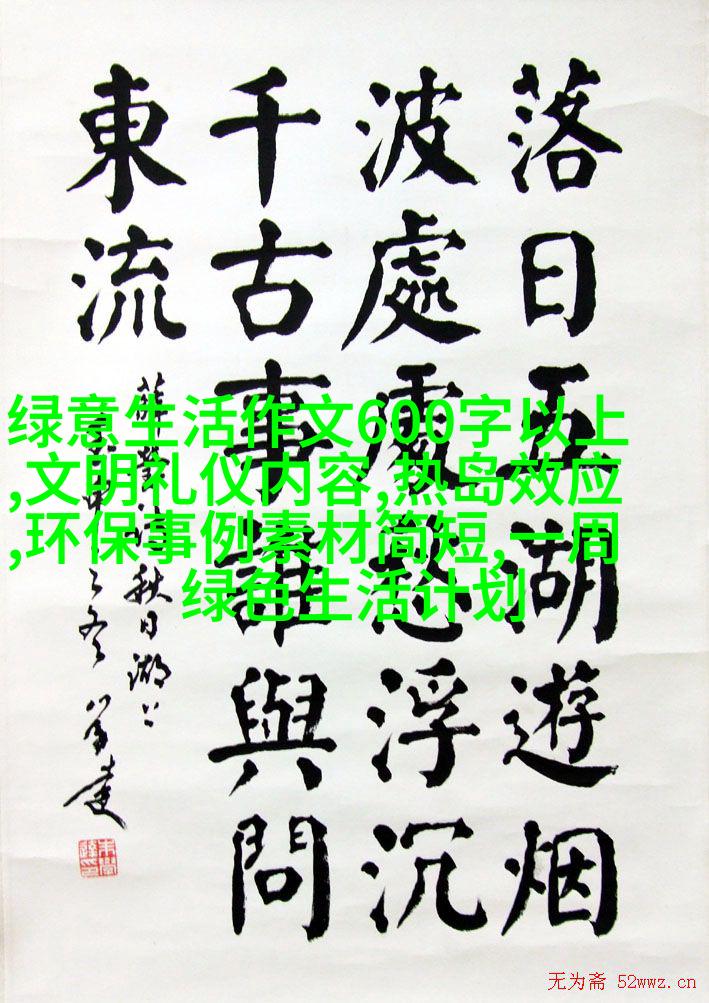 落日五湖遊烟
波處處愁浮沉
千古事誰與問
東流
薛瑩詩秋日湖上
绿意生活作文600字以上
,文明礼仪内容,热岛效应
,环保事例素材简短,一周
绿色生活计划
无为斋 52wwz.cn